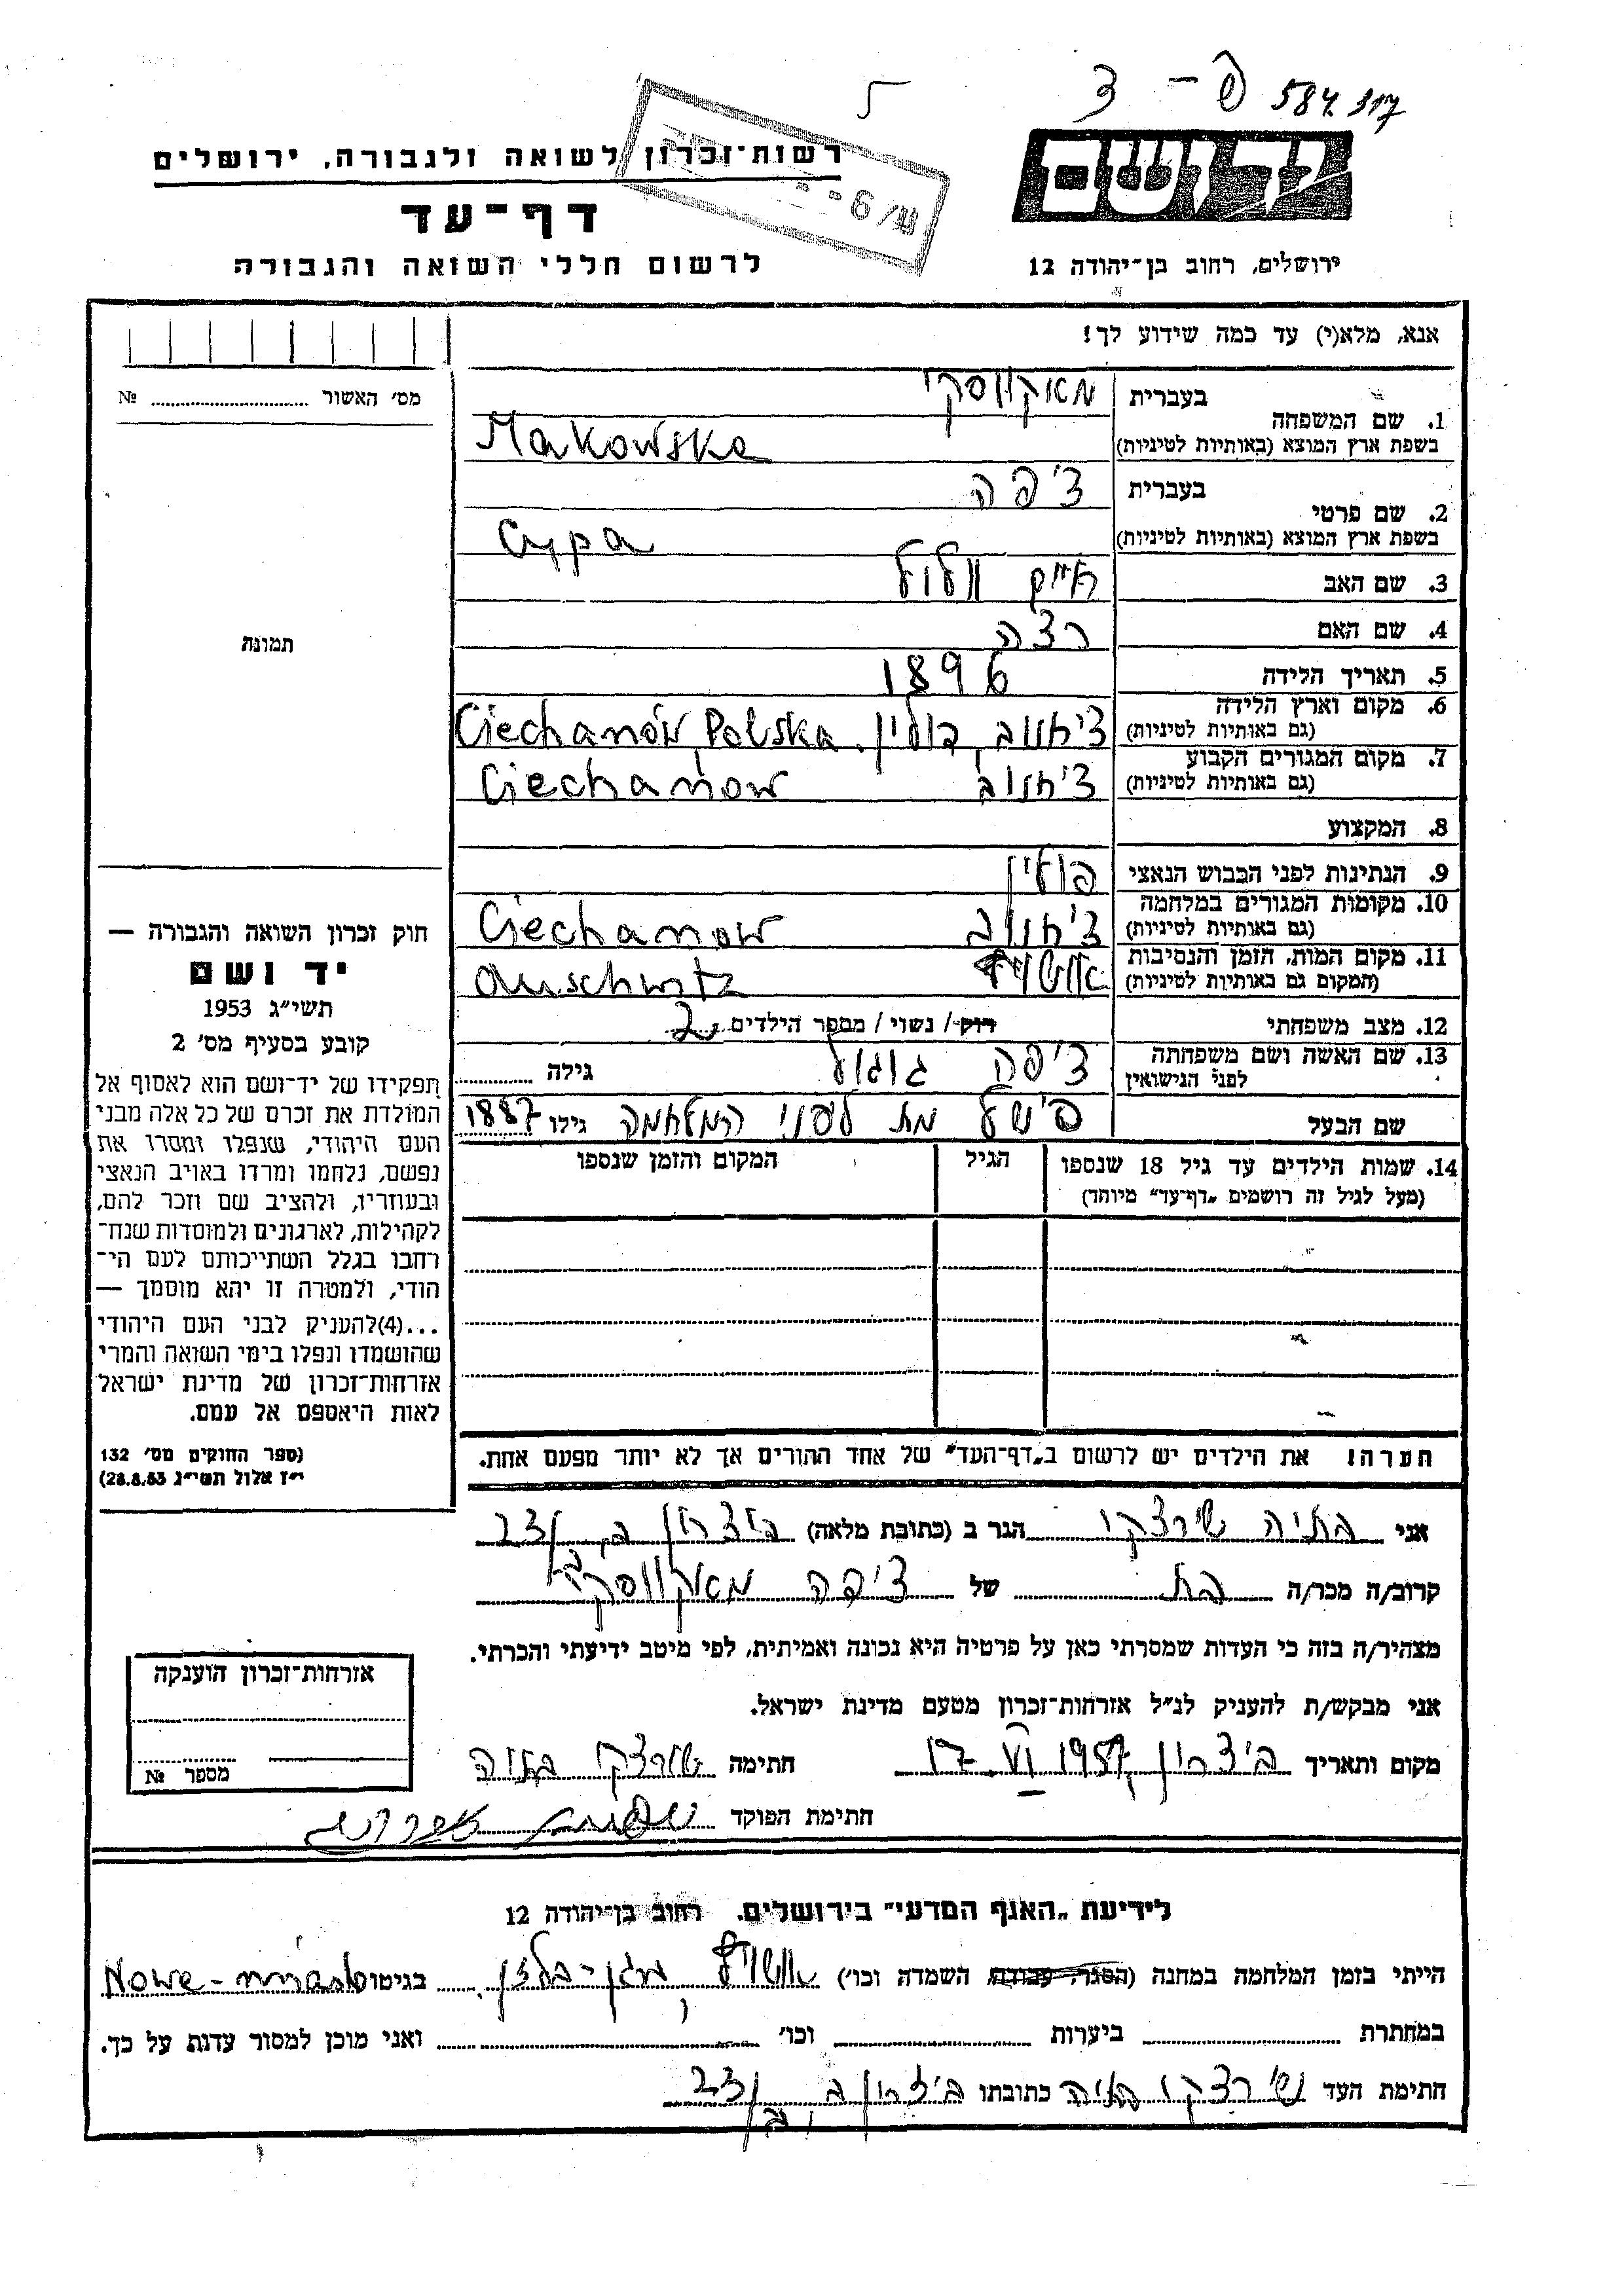 5 צ - פ 584317
רשות־זכרון לשואה ולגבורה, ירושלים
דף־עד
לרשום חללי השואה והגבורה
ש/6
יד ושם
ירושלים, רחוב בן־יהודה 12
אנא, מלא(י) עד כמה שידוע לך!
מס׳ האשור № 
תמונה
1. שם המשפחה בעברית מאקווסקי
בשפת ארץ המוצא (באותיות לטיניות) Makowska
2. שם פרטי בעברית ציפה
בשפת ארץ המוצא (באותיות לטיניות) Cypa
3. שם האב וולוול
4. שם האם רצה
5. תאריך הלידה 1896
6. מקום וארץ הלידה (גם באותיות לטיניות) ציחנוב, פולין. Ciechanów, Polska
7. מקום המגורים הקבוע (גם באותיות לטיניות) ציחנוב Ciechanów
8. המקצוע
9. הנתינות לפני הכבוש הנאצי פולין
10. מקומות המגורים במלחמה (גם באותיות לטיניות) ציחנוב Ciechanow
11. מקום המות, הזמן והנסיבות (המקום גם באותיות לטיניות) אושויץ Auschwitz
12. מצב משפחתי רוק / נשוי / מספר הילדים 2
13. שם האשה ושם משפחתה לפני הנישואין ציפה גוגול גילה
שם הבעל פישל מת לפני המלחמה גילו 1887
14. שמות הילדים עד גיל 18 שנספו (מעל לגיל זה רושמים „דף־עד״ מיוחד) הגיל המקום והזמן שנספו
חוק זכרון השואה והגבורה —
יד ושם
תשי״ג 1953
קובע בסעיף מס׳ 2
תפקידו של יד־ושם הוא לאסוף אל
המולדת את זכרם של כל אלה מבני
העם היהודי, שנפלו ומסרו את
נפשם, נלחמו ומרדו באויב הנאצי
ובעוזריו, ולהציב שם וזכר להם,
לקהילות, לארגונים ולמוסדות שנח־
רבו בגלל השתייכותם לעם הי־
הודי, ולמטרה זו יהא מוסמך —
...(4)להעניק לבני העם היהודי
שהושמדו ונפלו בימי השואה והמרי
אזרחות־זכרון של מדינת ישראל
לאות היאספם אל עמם.
(ספר החוקים מס׳ 132
י״ז אלול תשי״ג 28.8.53)
הערה! את הילדים יש לרשום ב„דף־העד״ של אחד ההורים אך לא יותר מפעם אחת.
אני בתיה שירצקו הגר ב (כתובת מלאה) ביצרון ב. 23
קרוב/ה מכר/ה בת של ציפה מאקווסקי
מצהיר/ה בזה כי העדות שמסרתי כאן על פרטיה היא נכונה ואמיתית, לפי מיטב ידיעתי והכרתי.
אני מבקש/ת להעניק לנ״ל אזרחות־זכרון מטעם מדינת ישראל.
מקום ותאריך ביצרון 17.VI 1957 חתימה שירצקו בתיה
חתימת הפוקד
אזרחות־זכרון הוענקה
מספר №
לידיעת „האגף המדעי״ בירושלים, רחוב בן־יהודה 12
הייתי בזמן המלחמה במחנה (הסגר, עבודה, השמדה וכו׳) אושויץ, ברגן-בלזן בגיטו Nowe-miasto
במחתרת ביערות וכו׳ ואני מוכן למסור עדות על כך.
חתימת העד שירצקו בתיה כתובתו ביצרון ב, 23